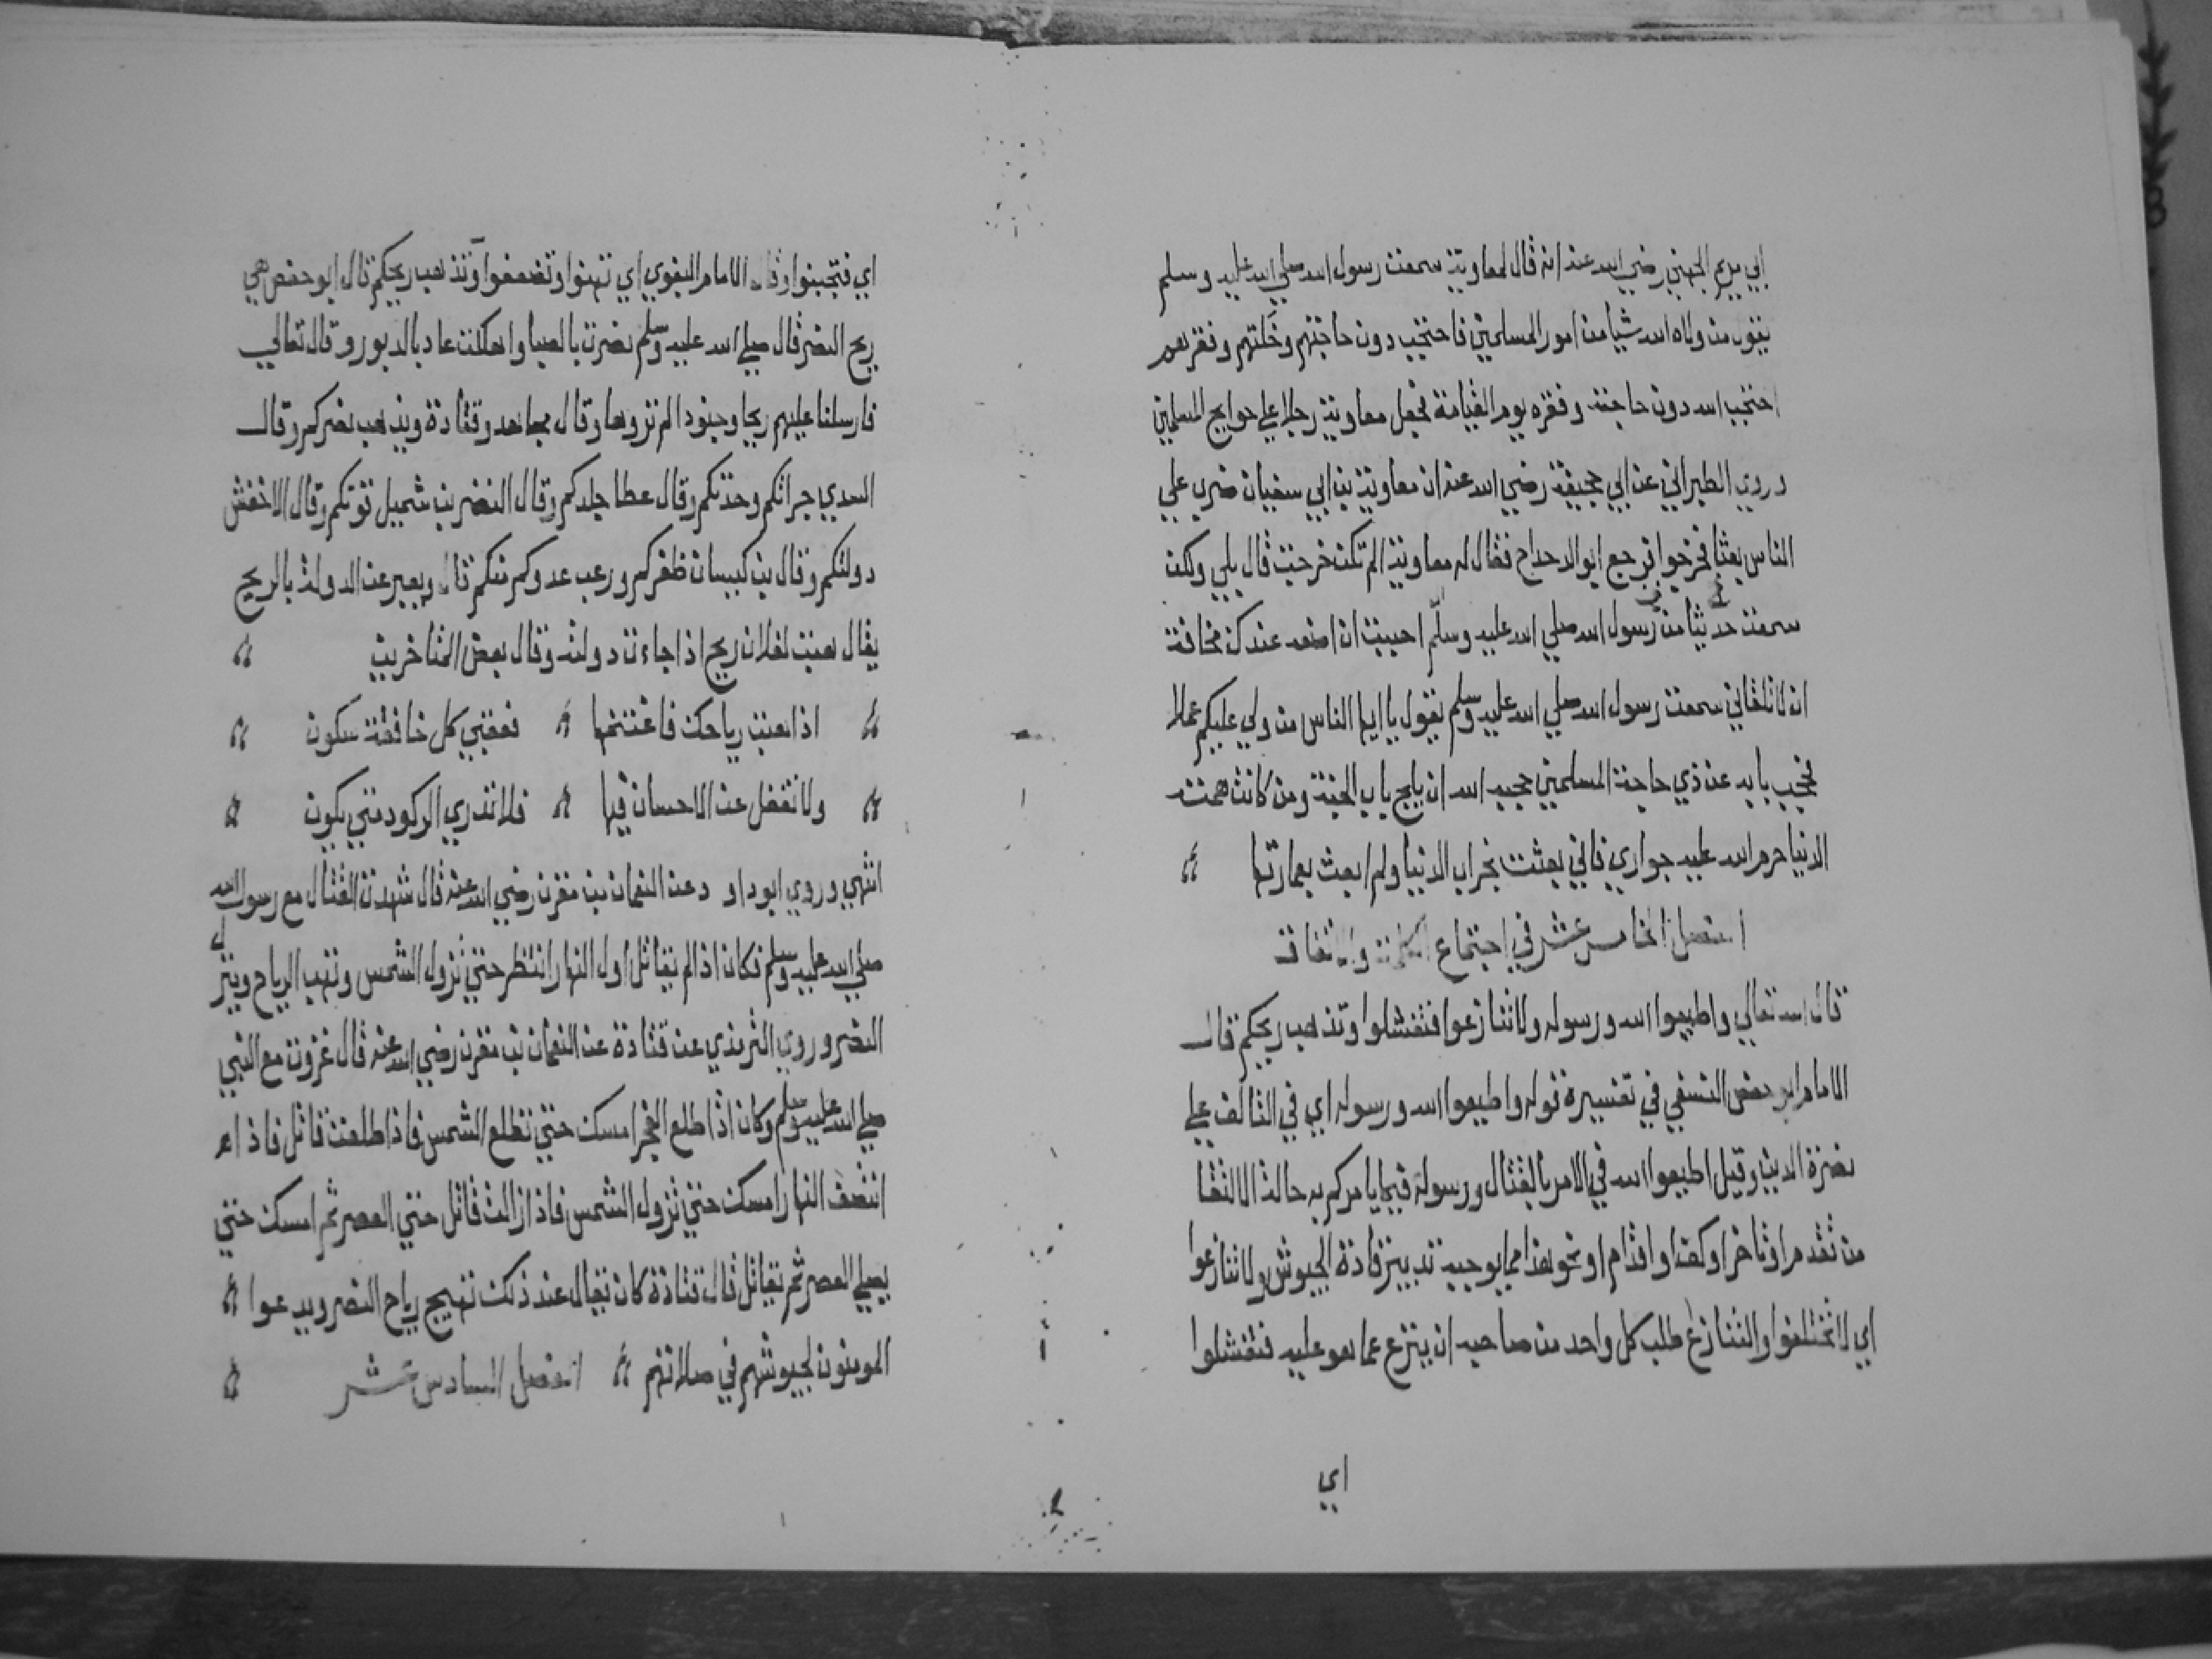 ابي مريم الجهني رضي الله عنه انه قال لمعاوية سمعت رسول الله صلي الله عليه وسلم
يقول من ولاه الله شيا من امور المسلمين فاحتجب دون حاجتهم وخلتهم وفقرهم
احتجب الله دون حاجته وفقره يوم القيامة فجعل معاوية رجلا علي حوايج المسلمين
وروي الطبراني عن ابي جحيفة رضي الله عنه ان معاوية بن ابي سفيان ضرب علي
الناس بعثا فخرجوا فرجع ابو الدحداح فقال له معاوية الم تكن خرجت قال بلي ولكن
سمعت حديثا من رسول الله صلي الله عليه وسلم احببت ان اضعه عندك مخافة
ان لا تلقاني سمعت رسول الله صلي الله عليه وسلم يقول يا ايها الناس من ولي عليكم عملا
فحجب بابه عن ذي حاجة المسلمين حجبه الله ان يلج باب الجنة ومن كانت همته
الدنيا حرم الله عليه جواري فاني بعثت بخراب الدنيا ولم ابعث بعمارتها
الفصل الخامس عشر في اجتماع الكلمة والاتفاق
قال الله تعالي واطيعوا الله ورسوله ولا تنازعوا فتفشلوا وتذهب ريحكم قال
الامام ابو حفص النسفي في تفسيره قوله واطيعوا الله ورسوله اي في التالف علي
نصرة الدين وقيل اطيعوا الله في الامر بالقتال ورسوله فيما يامركم به حالة الالتقا
من تقدم او تاخر او كف او اقدام او نحو هذا مما يوجبه تدبير قادة الجيوش ولا تنازعوا
اي لا تختلفوا والتنازع طلب كل واحد من صاحبه ان ينزع عما هو عليه فتفشلوا
اي
اي فتجبنوا وقال الامام البغوي اي تهنوا وتضعفوا وتذهب ريحكم قال ابو حفص هي
ريح النصر قال صلي الله عليه وسلم نصرت بالصبا واهلكت عاد بالدبور وقال تعالي
فارسلنا عليهم ريحا وجنودا لم تروها وقال مجاهد وقتادة ويذهب نصركم وقال
السدي جراتكم وحدتكم وقال عطا جلدكم وقال النضر بن شميل قوتكم وقال الاخفش
دولتكم وقال بن كيسان ظفركم ورعب عدوكم منكم قال ويعبر عن الدولة بالريح
يقال هبت لفلان ريح اذا جاءت دولته وقال بعض المتاخرين
اذا هبت رياحك فاغتنمها فعقبي كل خافقة سكون
ولا تغفل عن الاحسان فيها فلا تدري الركود متي يكون
انتهي وروي ابو داود عن النعمان بن مقرن رضي الله عنه قال شهدت القتال مع رسول الله
صلي الله عليه وسلم فكان اذا لم يقاتل اول النهار انتظر حتي تزول الشمس وتهب الرياح وينزل
النصر وروي الترمذي عن قتادة عن النعمان بن مقرن رضي الله عنه قال غزوت مع النبي
صلي الله عليه وسلم وكان اذا طلع الفجر امسك حتي تطلع الشمس فاذا طلعت قاتل فاذا
انتصف النهار امسك حتي تزول الشمس فاذا زالت قاتل حتي العصر ثم امسك حتي
يصلي العصر ثم يقاتل قال قتادة كان يقال عند ذلك تهيج رياح النصر ويدعوا
المومنون لجيوشهم في صلاتهم الفصل السادس عشر